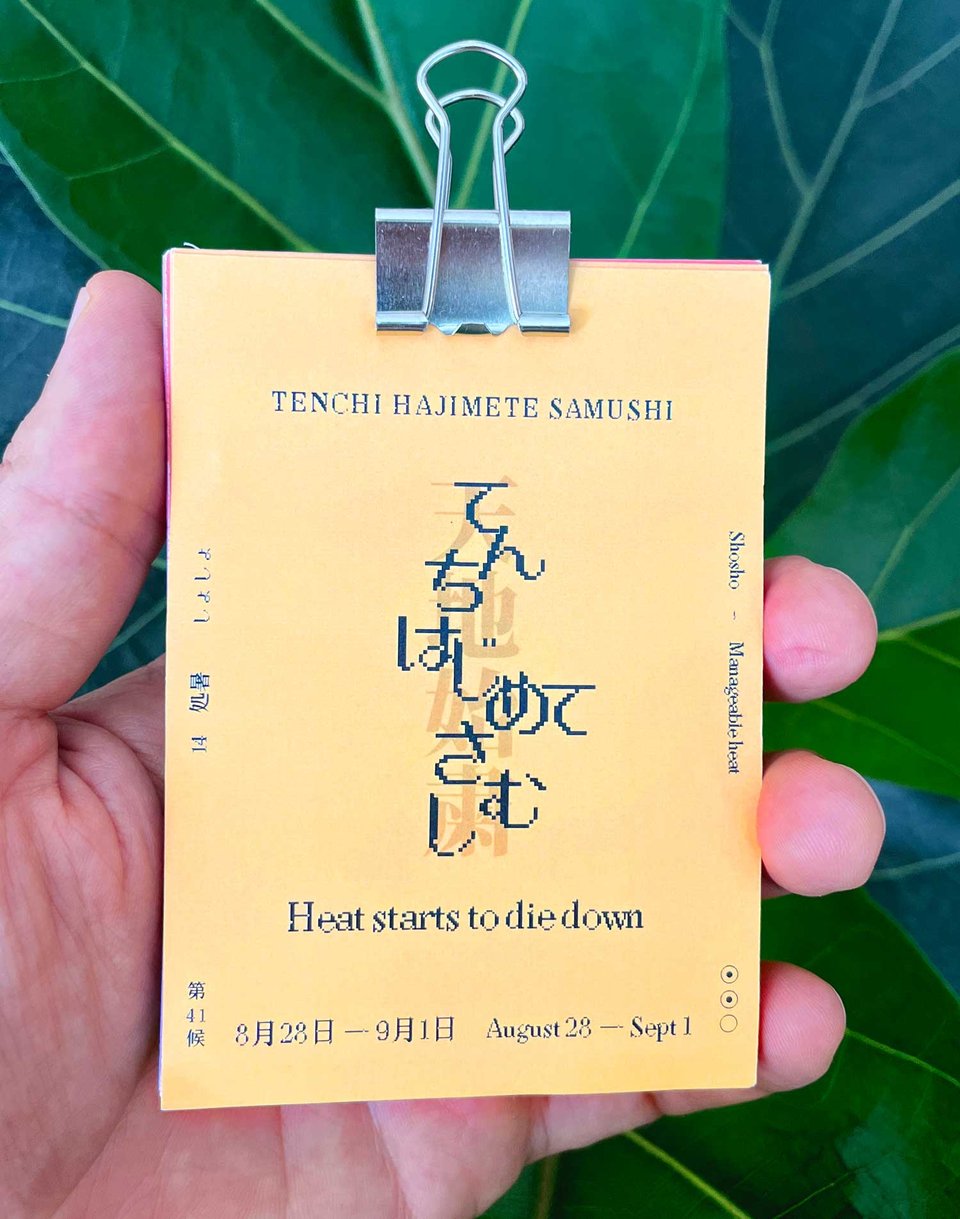 TENCHI HAJIMETE SAMUSHI
天地始粛
てんち
はじめて
さむし
Heat starts to die down
しょしょ
処暑
14
Shosho – Manageable heat
第
41
候
8月28日 — 9月1日
August 28 — Sept 1